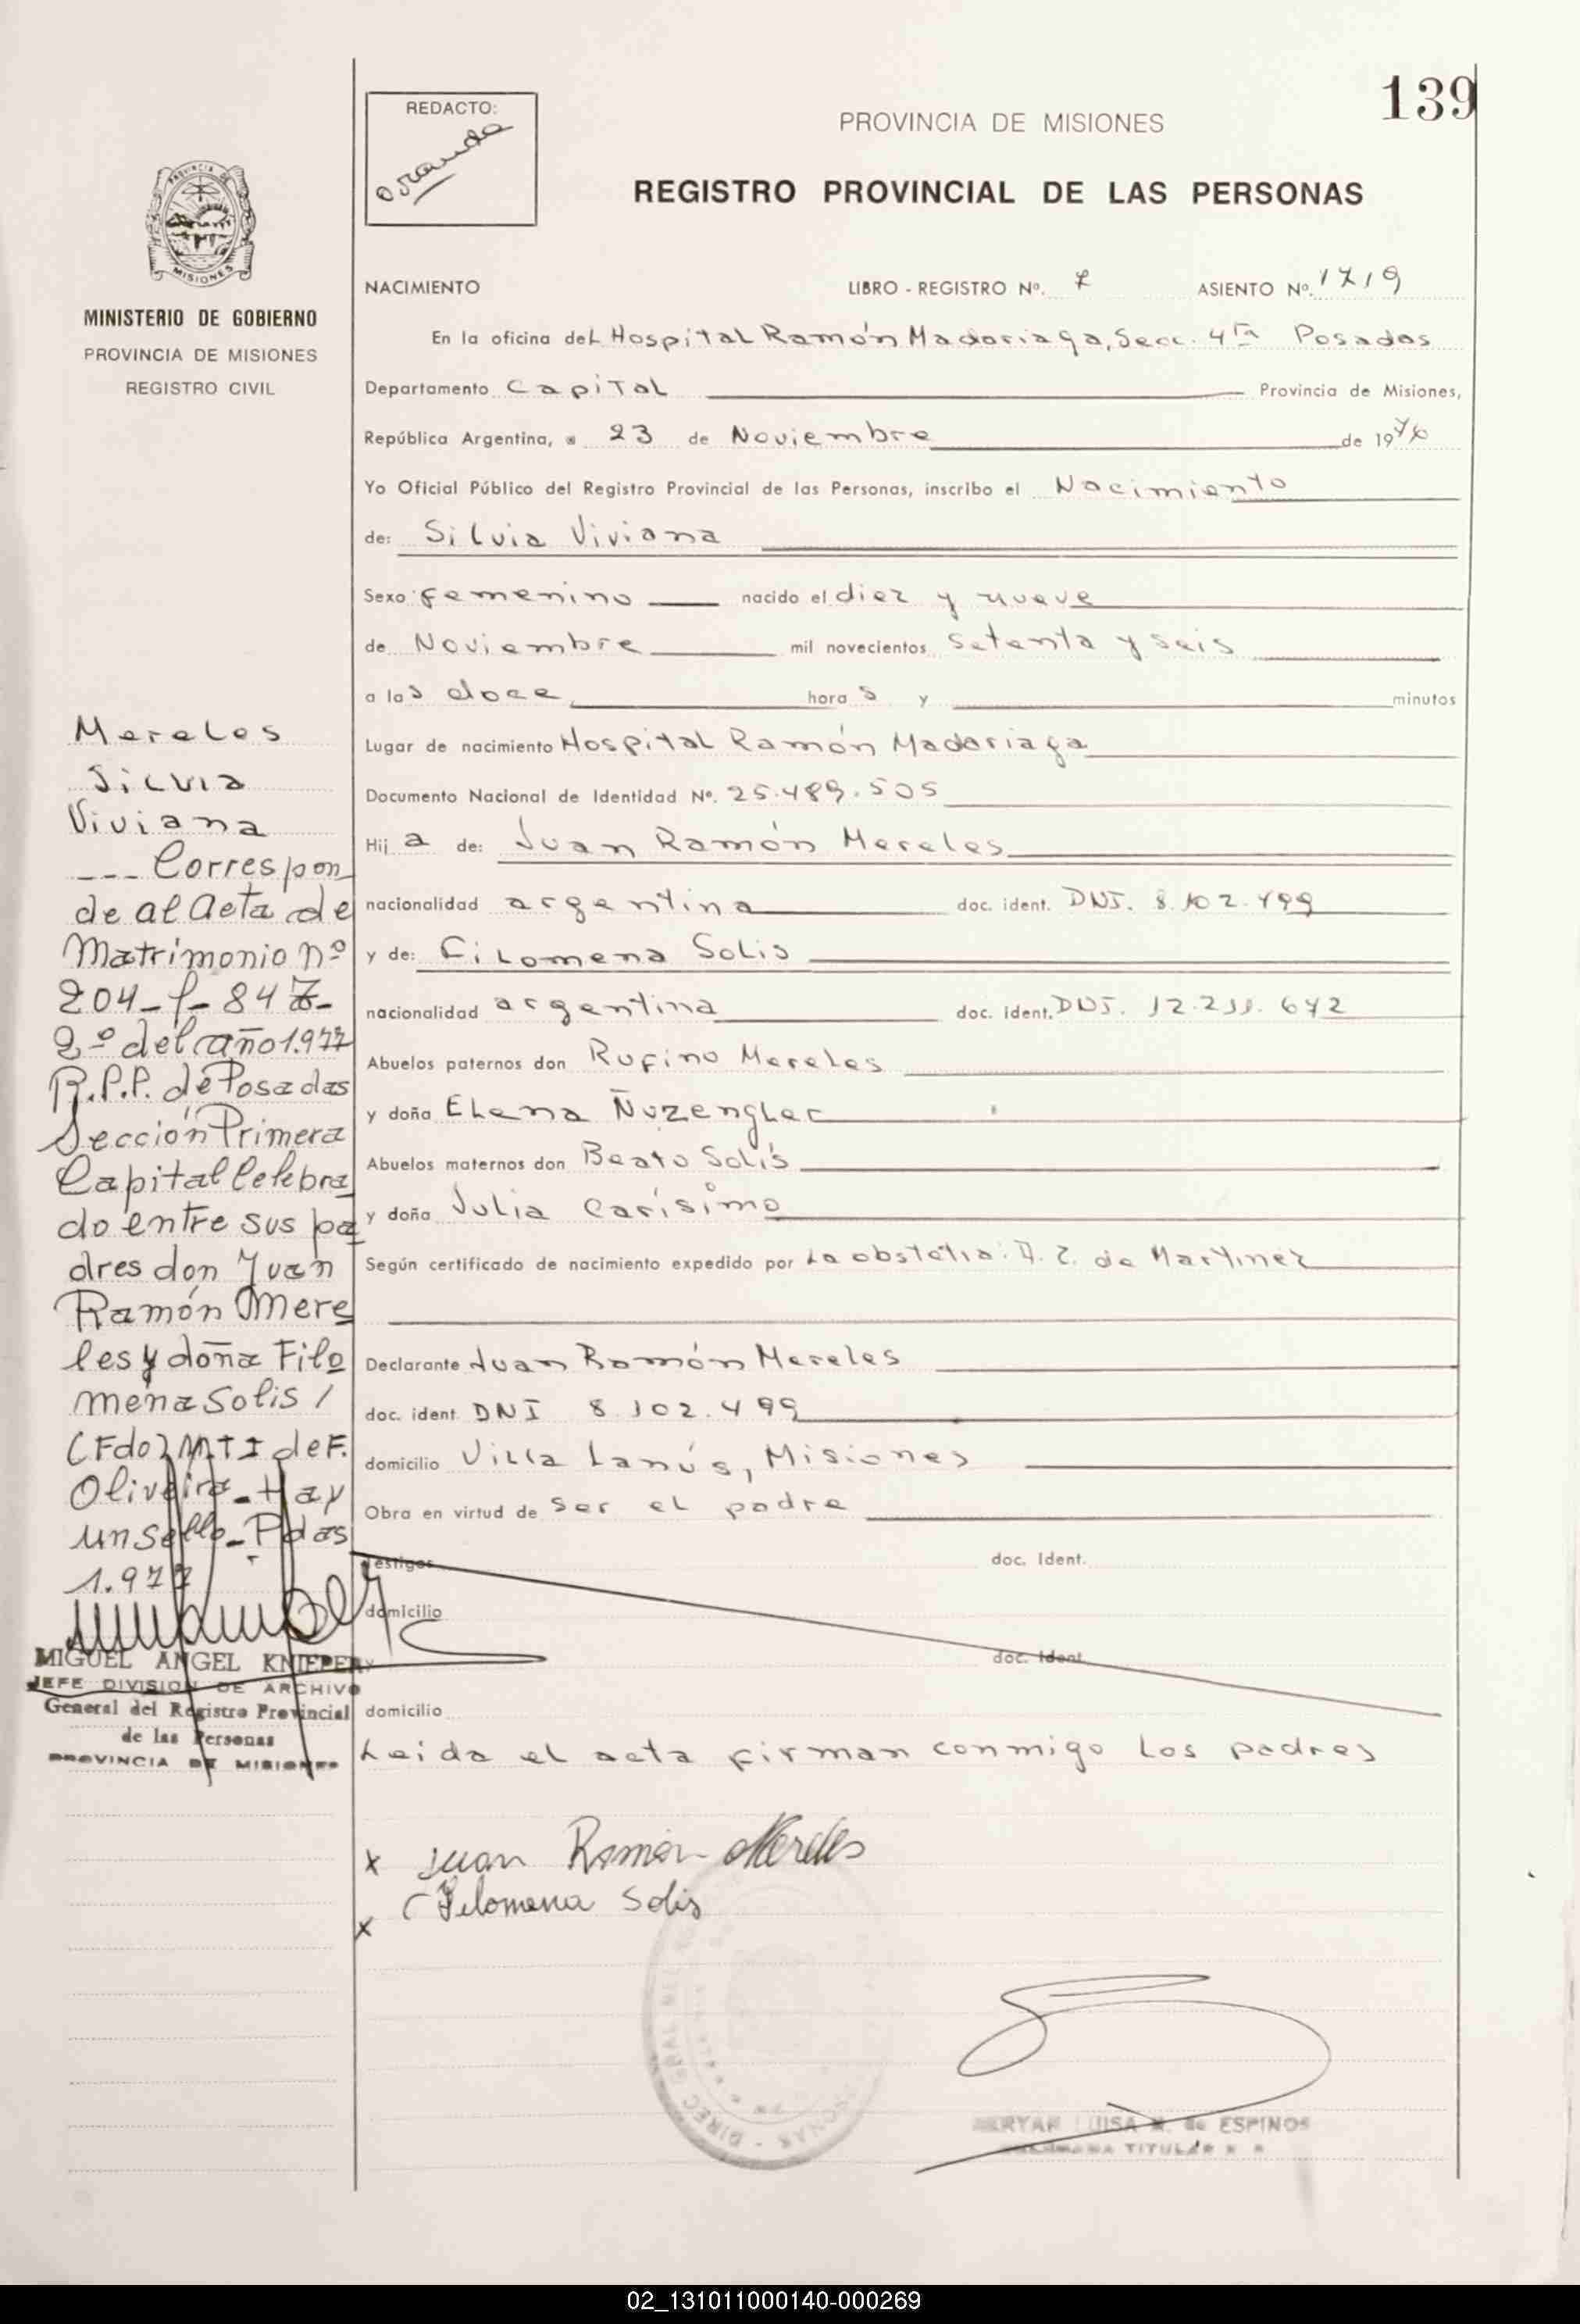 139
REDACTO:
PROVINCIA DE MISIONES
REGISTRO PROVINCIAL DE LAS PERSONAS
PROVINCIA DE
MISIONES
MINISTERIO DE GOBIERNO
PROVINCIA DE MISIONES
REGISTRO CIVIL
NACIMIENTO LIBRO - REGISTRO Nº. 7 ASIENTO Nº. 1719
En la oficina del Hospital Ramón Madariaga, Secc. 4ta Posadas
Departamento Capital Provincia de Misiones,
República Argentina, a 23 de Noviembre de 1976
Yo Oficial Público del Registro Provincial de las Personas, inscribo el Nacimiento
de: Silvia Viviana
Sexo femenino nacido el diez y nueve
de Noviembre mil novecientos setenta y seis
a las doce horas y minutos
Lugar de nacimiento Hospital Ramón Madariaga
Documento Nacional de Identidad Nº. 25.489.505
Hija de: Juan Ramón Mereles
nacionalidad argentina doc. ident. DNI. 8.102.499
y de: Filomena Solis
nacionalidad argentina doc. ident. DNI. 12.211.672
Abuelos paternos don Rufino Mereles
y doña Elena Ñuzengler
Abuelos maternos don Beato Solís
y doña Julia Carísimo
Según certificado de nacimiento expedido por La de Martinez
Declarante Juan Ramón Mereles
doc. ident. DNI 8.102.499
domicilio Villa Lanús, Misiones
Obra en virtud de ser el padre
Testigos doc. Ident.
domicilio
doc. Ident.
domicilio
Leida el acta firman conmigo los padres
x Juan Ramón Mereles
x Filomena Solis
LUISA M. de ESPINOS
TITULAR
Mereles
Silvia
Viviana
--- Correspon
de al Acta de
Matrimonio nº
204-f-84 7-
2º del año 1.977
R.P.P. de Posadas
Sección Primera
Capital Celebra
do entre sus pa
dres don Juan
Ramón Mere
les y doña Filo
mena Solis /
(Fdo) M.T I de F.
Oliveira - Hay
un sello - Pdas
1.977
MIGUEL ANGEL KNIEPER
JEFE DIVISION DE ARCHIVO
General del Registro Provincial
de las Personas
PROVINCIA DE MISIONES
02_131011000140-000269